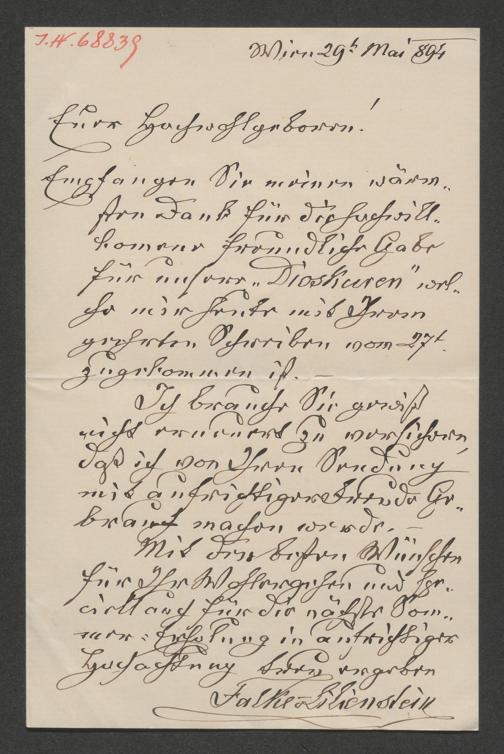 I.N. 68839
Wien 29t Mai 894
Euer Hochwohlgeboren!
Empfangen Sie meinen wärm-
sten Dank für die hochwill-
komene freundliche Gabe
für unsere „Dioskuren" wel-
che mir heute mit Ihrem
geehrten Schreiben vom 27t.
zugekommen ist. —
Ich brauche Sie gewiß
nicht erneuert zu versichern,
daß ich von Ihrer Sendung
mit aufrichtiger Freude Ge-
brauch machen werde. —
Mit den besten Wünschen
für Ihr Wohlergehen und spe-
ciell auch für die nächste Som-
mer-Erholung in aufrichtiger
Hochachtung treu ergeben
Falke-Lilienstein